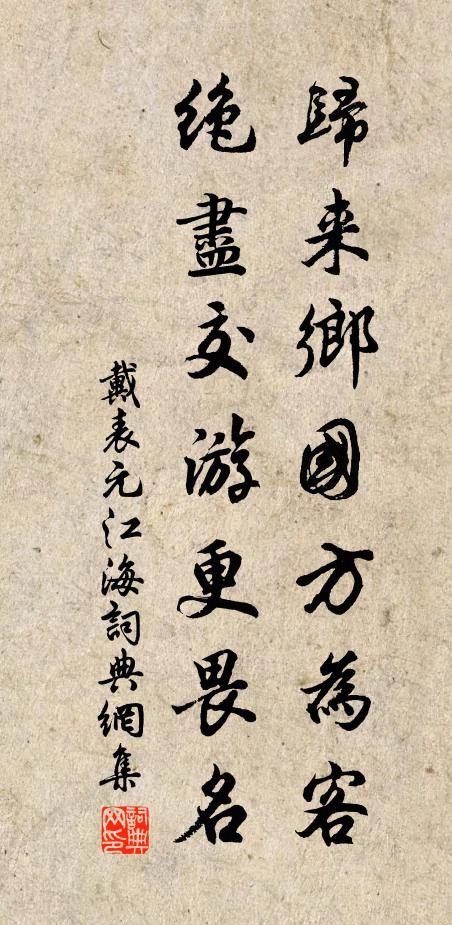 歸来鄉國方為客
絶盡交游更畏名
戴表元江海詞典網集
詞典网印